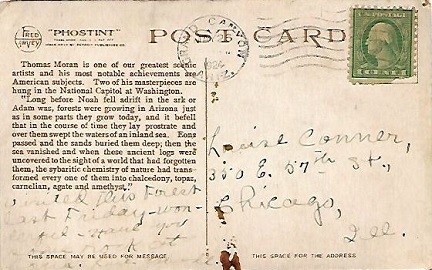 FRED HARVEY
"PHOSTINT"
POST CARD
GRAND CANYON
ARIZ.
Thomas Moran is one of our greatest scenic
artists and his most notable achievements are
American subjects. Two of his masterpieces are
hung in the National Capitol at Washington.
"Long before Noah fell adrift in the ark or
Adam was, forests were growing in Arizona just
as in some parts they grow today, and it befell
that in the course of time they lay prostrate and
over them swept the waters of an inland sea. Eons
passed and the sands buried them deep; then the
sea vanished and when these ancient logs were
uncovered to the sight of a world that had forgotten
them, the sybaritic chemistry of nature had trans-
formed every one of them into chalcedony, topaz,
carnelian, agate and amethyst."
this Forest
won-
you
THIS SPACE MAY BE USED FOR MESSAGE
Louise Conner,
57th St.,
Chicago,
Ill.
THIS SPACE IS FOR THE ADDRESS